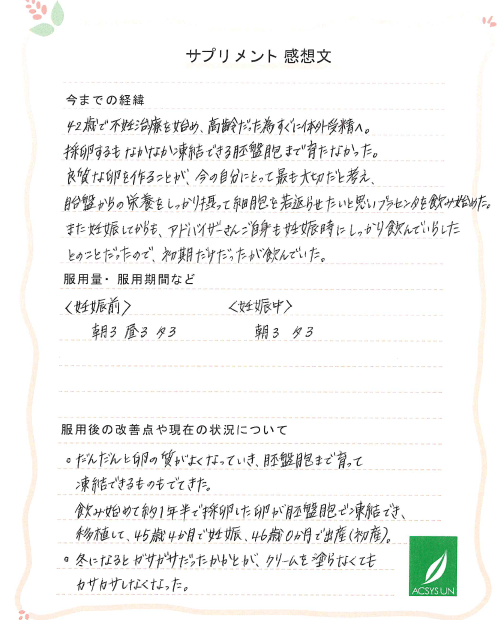 サプリメント 感想文
今までの経緯
42歳で不妊治療を始め、高齢だった為すぐに体外受精へ。
採卵するもなかなか凍結できる胚盤胞まで育たなかった。
良質な卵を作ることが、今の自分にとって最も大切だと考え、
胎盤からの栄養をしっかり摂って細胞を若返らせたいと思いプラセンタを飲み始めた。
また妊娠してからも、アドバイザーさんご自身も妊娠時にしっかり飲んでいらした
とのことだったので、初期だけだったが飲んでいた。
服用量・服用期間など
〈妊娠前〉 〈妊娠中〉
朝3 昼3 夕3 朝3 夕3
服用後の改善点や現在の状況について
○ だんだんと卵の質がよくなっていき、胚盤胞まで育って
凍結できるものもでてきた。
飲み始めて約1年半で採卵した卵が胚盤胞で凍結でき、
移植して、45歳4か月で妊娠、46歳0か月で出産(初産)。
○ 冬になるとガサガサだったかかとが、クリームを塗らなくても
カサカサしなくなった。
ACSYSUN